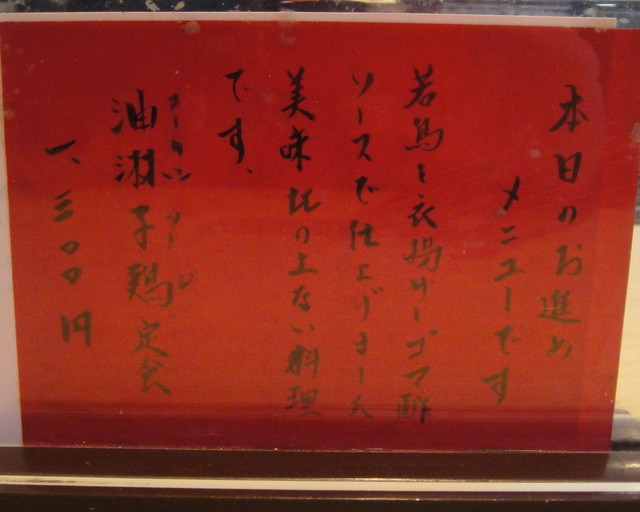 本日のお進め
メニューです
若鳥を衣揚げーゴマ酢
ソースで仕上げます
美味此の上ない料理
です、
油淋子鶏定食
一、三〇〇円